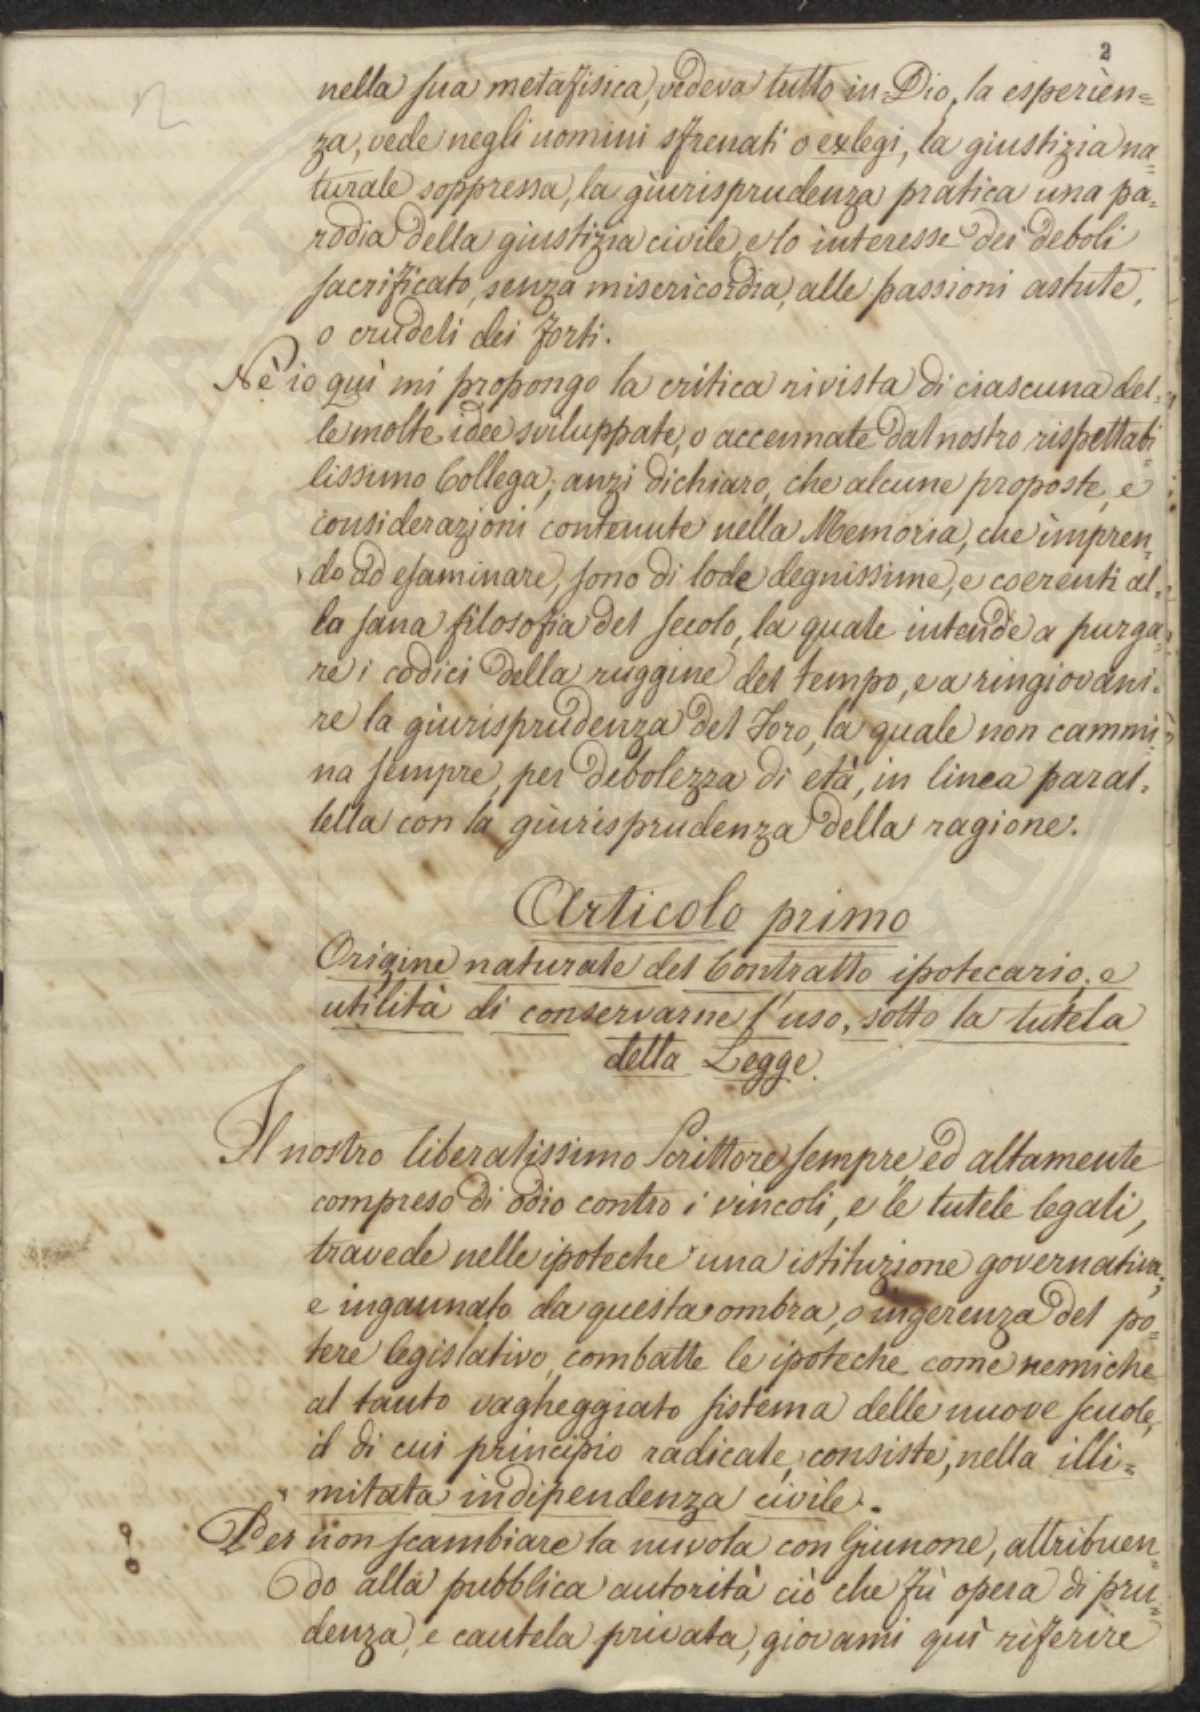 2
nella sua metafisica, vedeva tutto in Dio, la esperien=
za, vede negli uomini sfrenati o exlegi, la giustizia na=
turale soppressa, la giurisprudenza pratica una pa=
rodia della giustizia civile, e lo interesse dei deboli
sacrificato, senza misericordia, alle passioni astute,
o crudeli dei forti.
Nè io quì mi propongo la critica rivista di ciascuna del=
le molte idee sviluppate, o accennate dal nostro rispettabi=
lissimo Collega; anzi dichiaro, che alcune proposte, e
considerazioni contenute nella Memoria, che impren=
do ad esaminare, sono di lode degnissime, e coerenti al=
la sana filosofia del secolo, la quale intende a purga=
re i codici della ruggine del tempo, e a ringiovani=
re la giurisprudenza del Foro, la quale non cammi=
na sempre, per debolezza di età, in linea paral=
lella con la giurisprudenza della ragione.
Articolo primo
Origine naturale del Contratto ipotecario, e
utilità di conservarne l'uso, sotto la tutela
della Legge.
Il nostro liberalissimo Scrittore, sempre, ed altamente
compreso di odio contro i vincoli, e le tutele legali,
travede nelle ipoteche una istituzione governativa;
e ingannato da questa ombra, o ingerenza del po=
tere legislativo, combatte le ipoteche come nemiche
al tanto vagheggiato sistema delle nuove scuole,
il di cui principio radicale, consiste, nella illi=
mitata indipendenza civile.
Per non scambiare la nuvola con Giunone, attribuen=
do alla pubblica autorità ciò che fù opera di pru=
denza, e cautela privata, giovami quì riferire